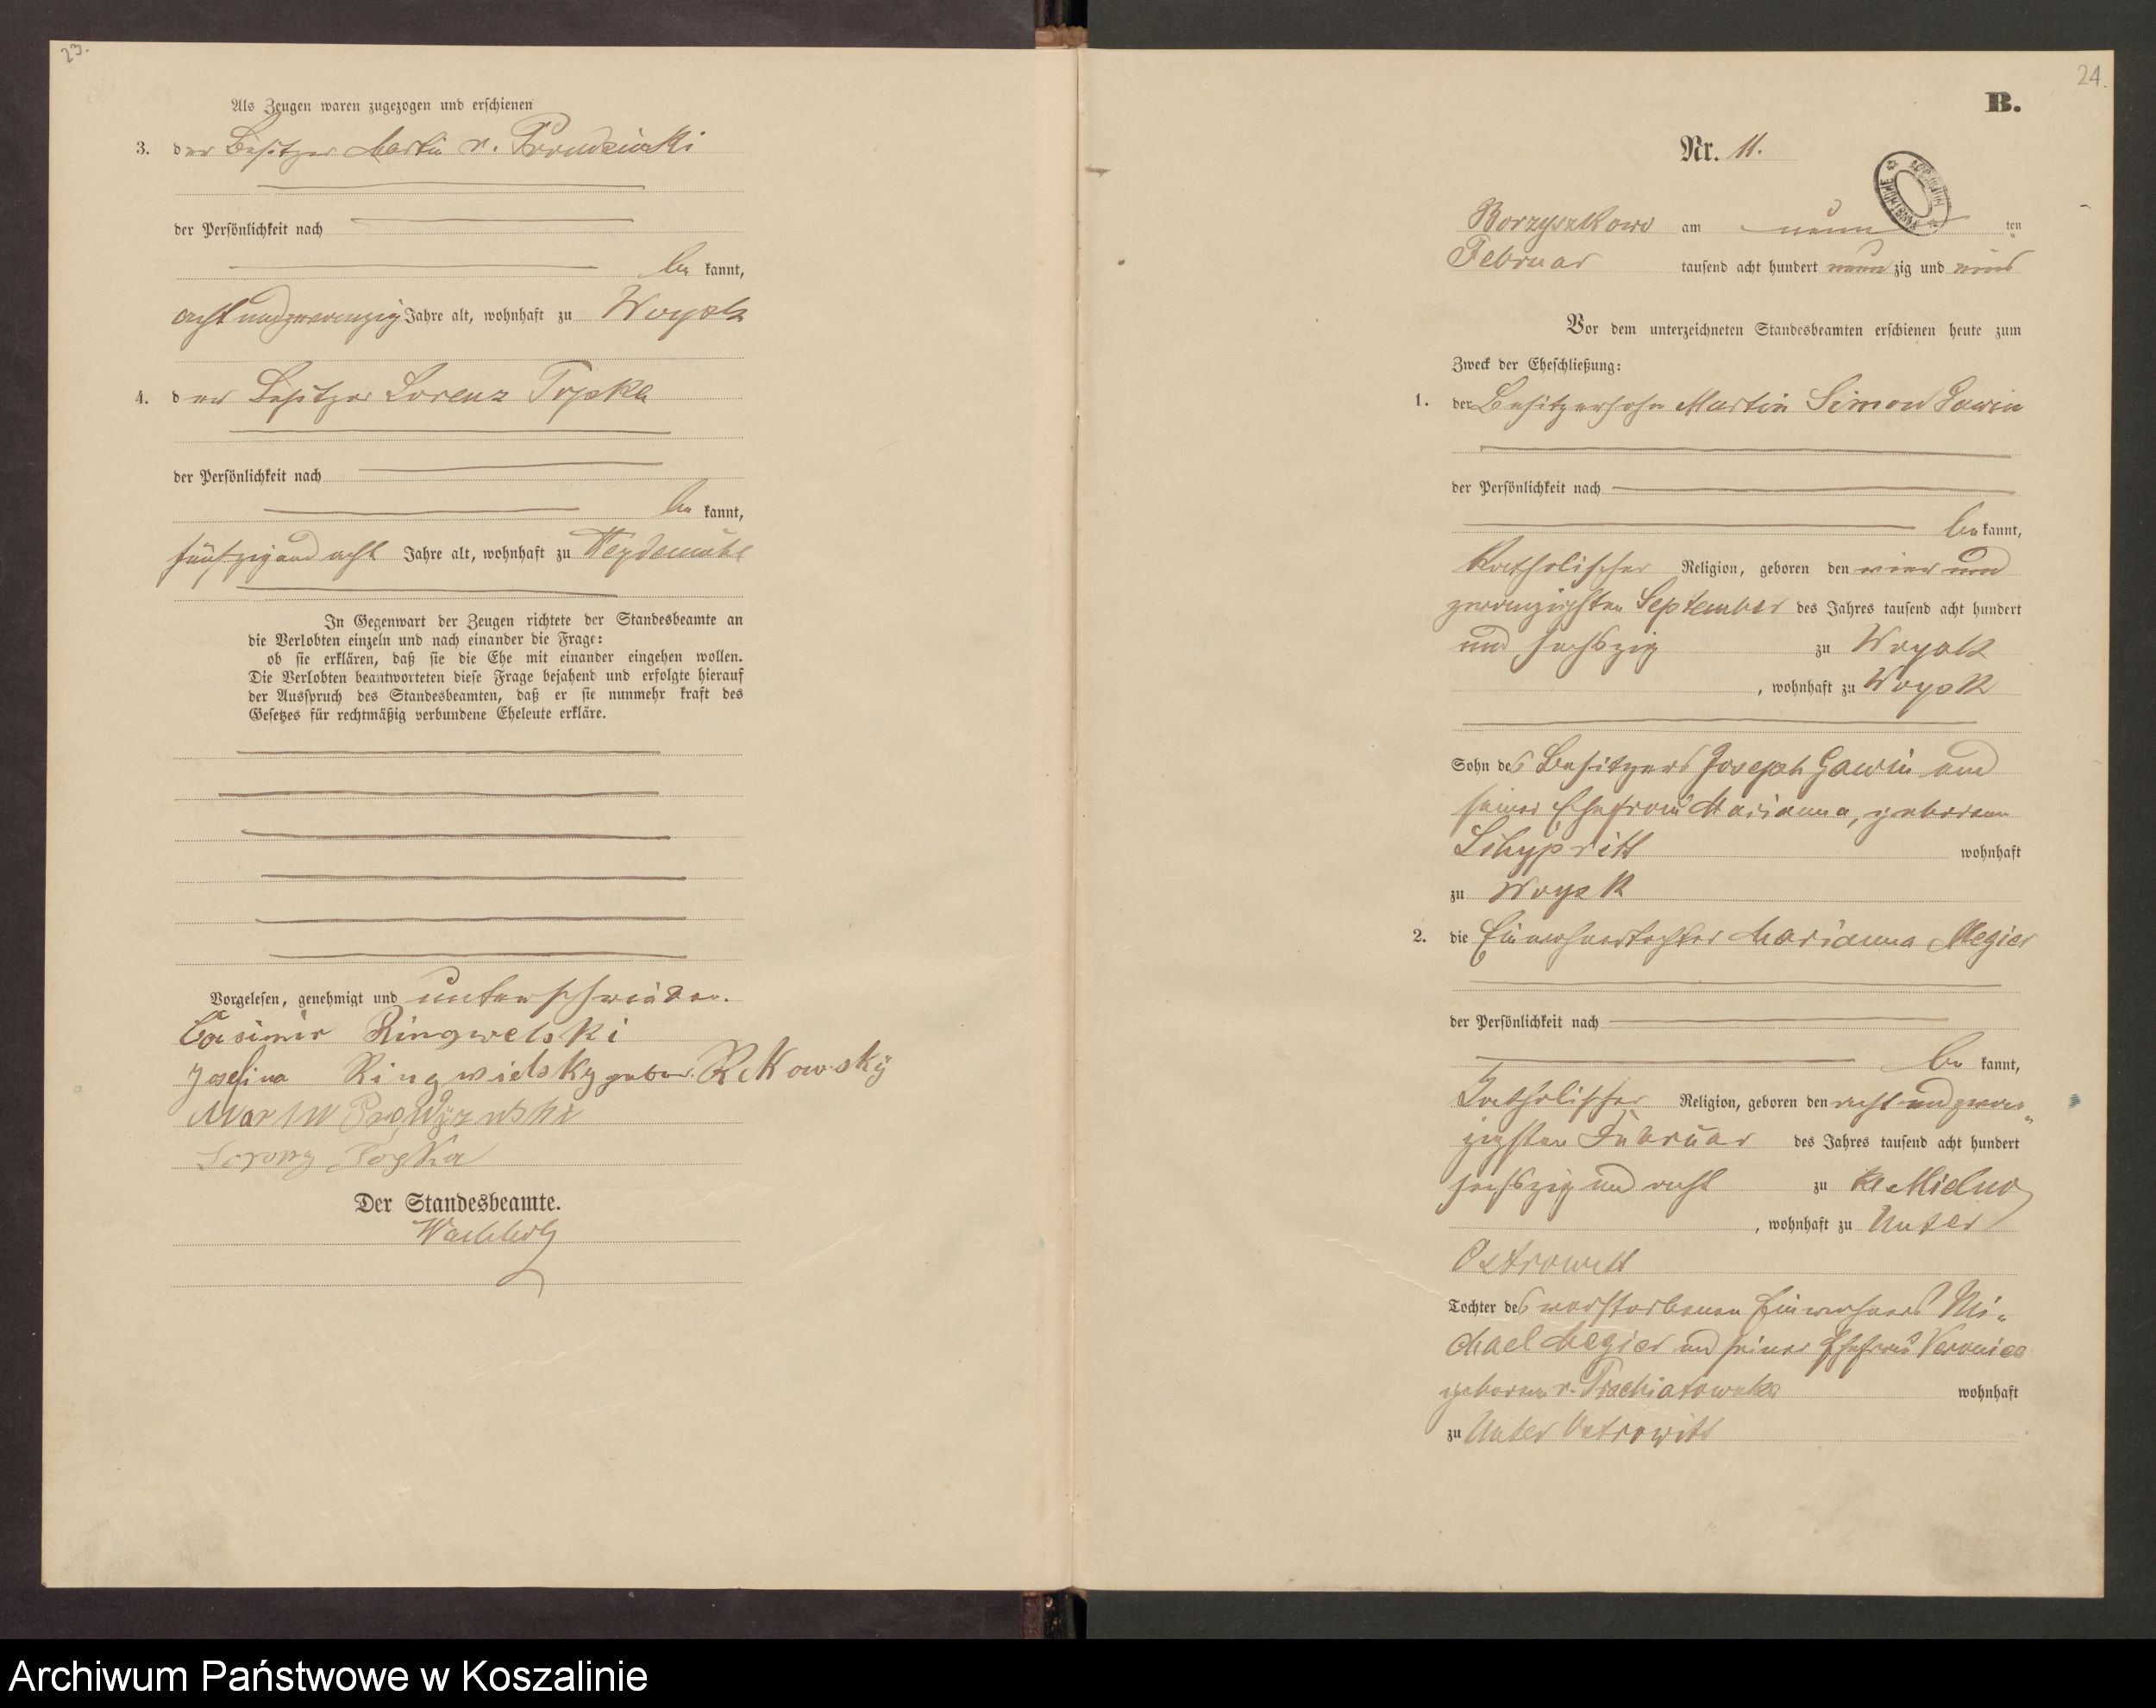 23.
Als Zeugen waren zugezogen und erschienen
3. der Besitzer Martin v.
der Persönlichkeit nach
be kannt,
acht und zwanzig Jahre alt, wohnhaft zu Woysk
4. der Besitzer Lorenz Topka
der Persönlichkeit nach
be kannt,
fünfzig und acht Jahre alt, wohnhaft zu
In Gegenwart der Zeugen richtete der Standesbeamte an
die Verlobten einzeln und nach einander die Frage:
ob sie erklären, daß sie die Ehe mit einander eingehen wollen.
Die Verlobten beantworteten diese Frage bejahend und erfolgte hierauf
der Ausspruch des Standesbeamten, daß er sie nunmehr kraft des
Gesetzes für rechtmäßig verbundene Eheleute erkläre.
Vorgelesen, genehmigt und unterschrieben.
Casimir Ringwelski
Josefina Ringwielsky gebor. Rekowsky
Martin
Topka
Der Standesbeamte.
24.
B.
Nr. 11.
Borzyszkowo am neun ten
Februar tausend acht hundert neun zig und eins
Vor dem unterzeichneten Standesbeamten erschienen heute zum
Zweck der Eheschließung:
1. der Besitzersohn Martin Simon Gawin
der Persönlichkeit nach
be kannt,
katholischer Religion, geboren den vier und
zwanzigsten September des Jahres tausend acht hundert
und sechszig zu Woysk
, wohnhaft zu Woysk
Sohn des Besitzers Joseph Gawin und
seiner Ehefrau Marianna, geborene
wohnhaft
zu Woysk
2. die Einwohnertochter Marianna Megier
der Persönlichkeit nach
be kannt,
katholischer Religion, geboren den acht und zwan"
zigsten Februar des Jahres tausend acht hundert
sechszig und acht zu Kl
, wohnhaft zu Unter
Ostrowitt
Tochter des verstorbenen Einwohners Mi"
chael Megier und seiner Ehefrau Veronica
geborene v. wohnhaft
zu Unter Ostrowitt
Archiwum Państwowe w Koszalinie